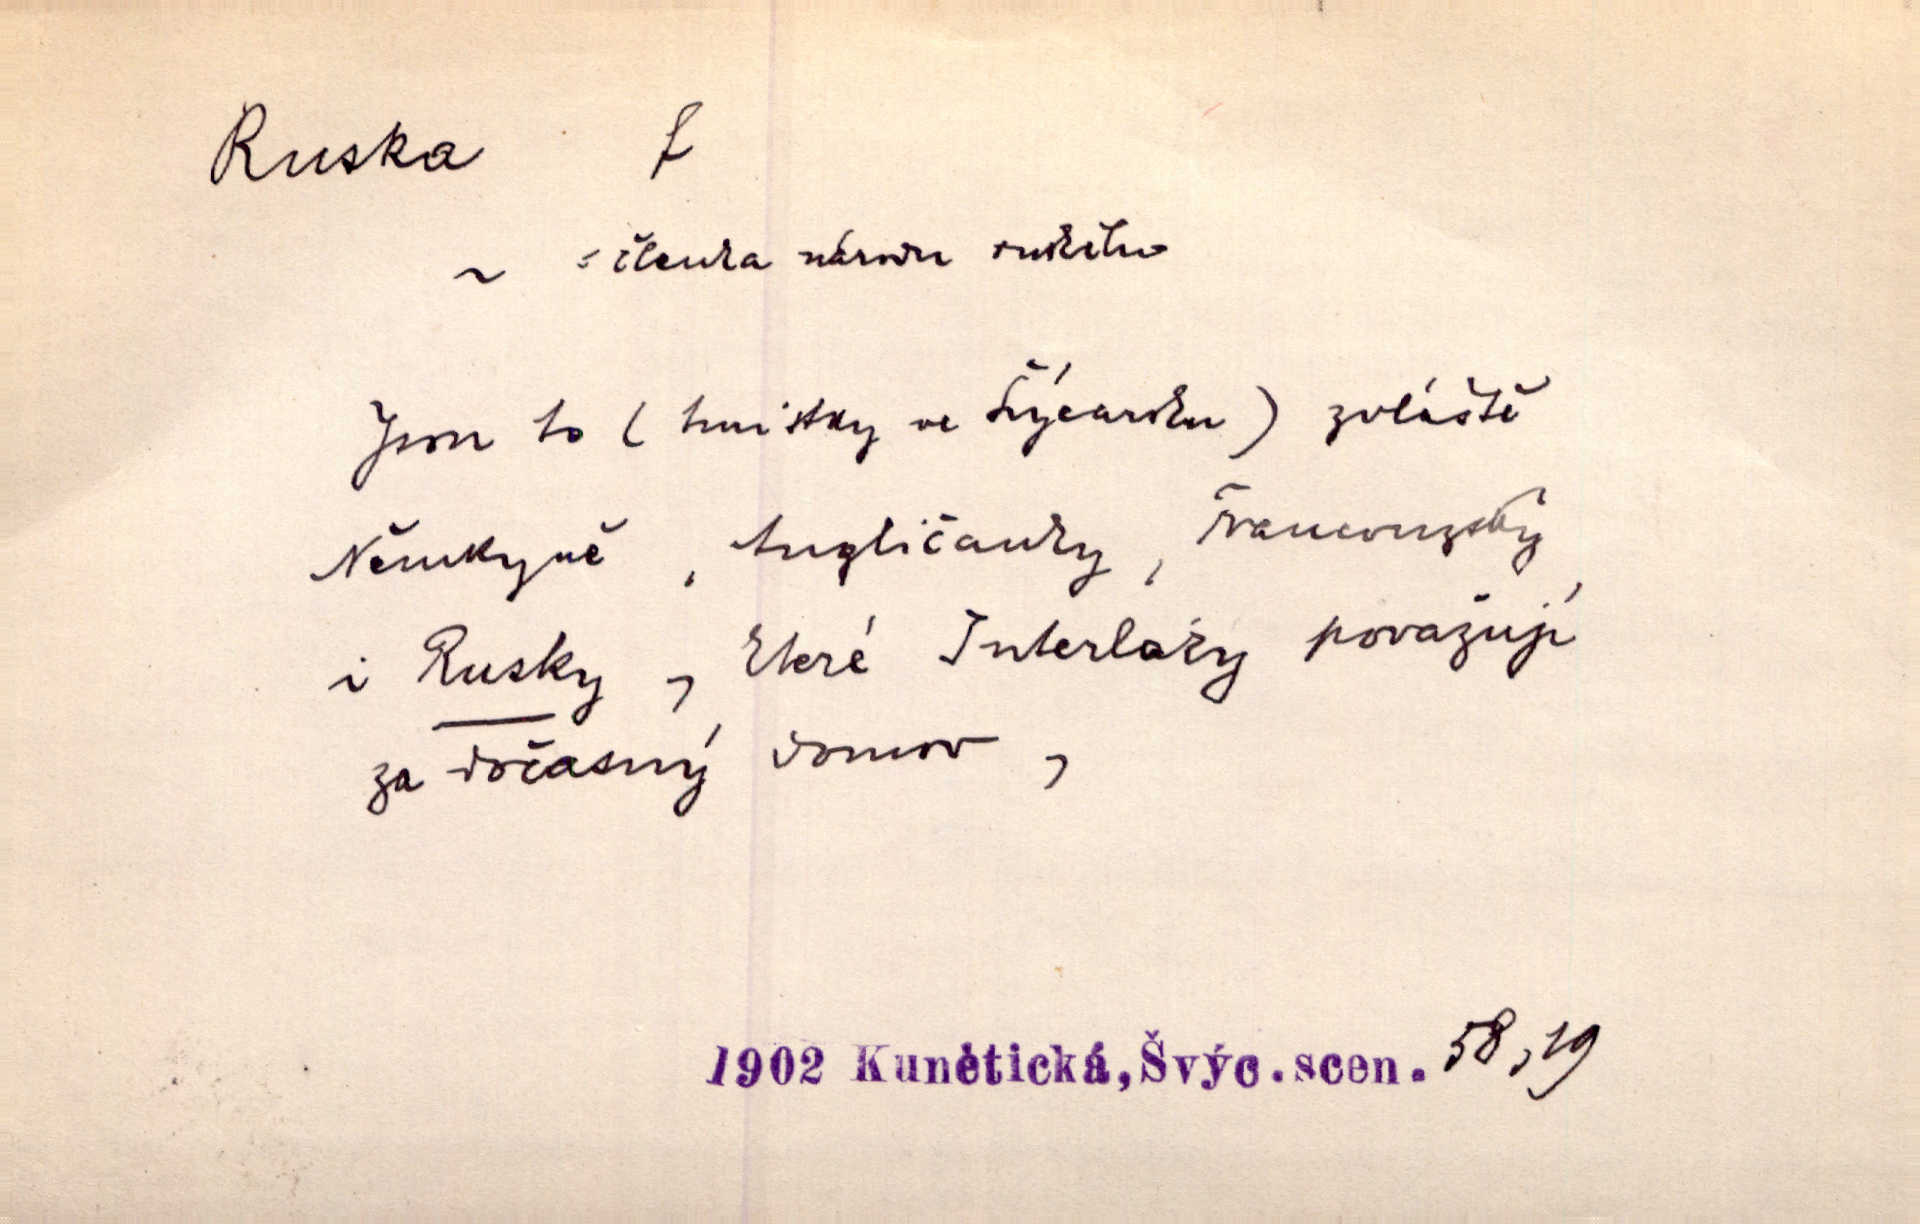 Ruska f
~ = členka národu ruského
Jsou to (turistky ve Šýcarsku) zvláště
Němkyně, Angličanky, Francouzsky,
i Rusky, které Interláky považují
za dočasný domov,
1902 Kunětická, Švýc. scen. 58,19